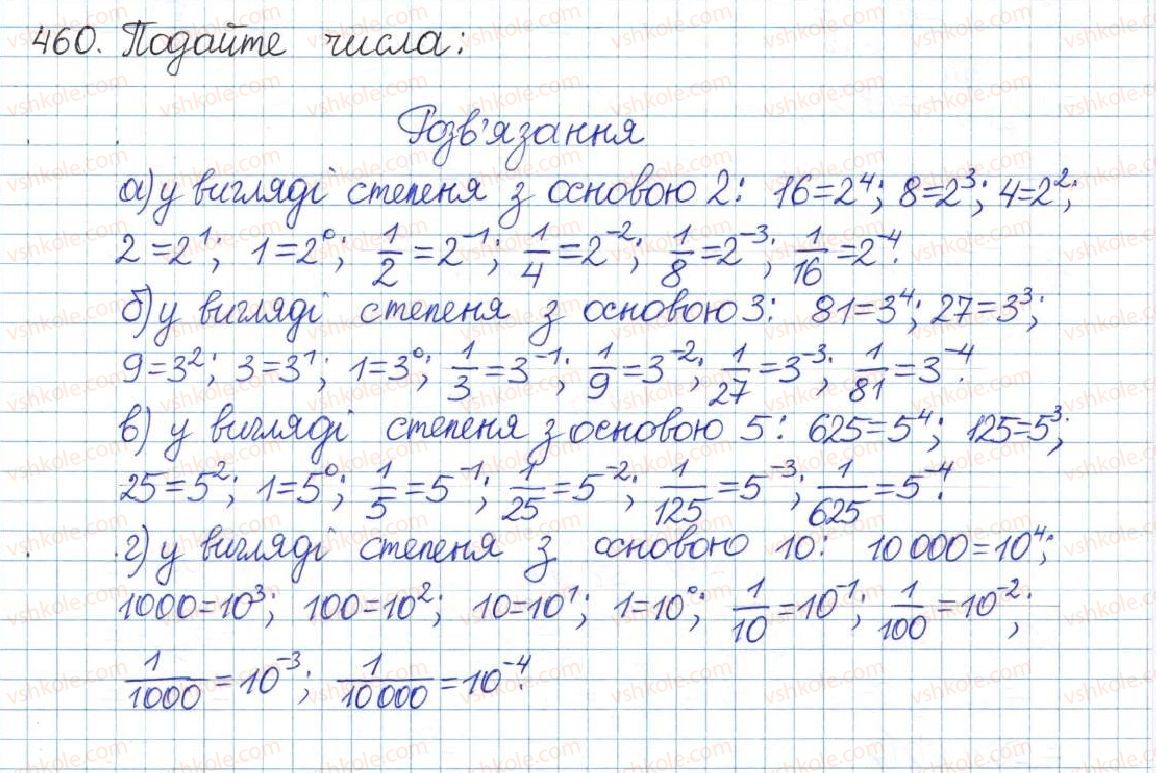 460. Подайте числа:
Розв'язання
а) у вигляді степеня з основою 2: 16=2⁴; 8=2³; 4=2²;
2=2¹; 1=2⁰; 1/2=2⁻¹; 1/4=2⁻²; 1/8=2⁻³; 1/16=2⁻⁴.
б) у вигляді степеня з основою 3: 81=3⁴; 27=3³;
9=3²; 3=3¹; 1=3⁰; 1/3=3⁻¹; 1/9=3⁻²; 1/27=3⁻³; 1/81=3⁻⁴.
в) у вигляді степеня з основою 5: 625=5⁴; 125=5³;
25=5²; 1=5⁰; 1/5=5⁻¹; 1/25=5⁻²; 1/125=5⁻³; 1/625=5⁻⁴.
г) у вигляді степеня з основою 10: 10 000=10⁴;
1000=10³; 100=10²; 10=10¹; 1=10⁰; 1/10=10⁻¹; 1/100=10⁻²;
1/1000=10⁻³; 1/10 000=10⁻⁴.